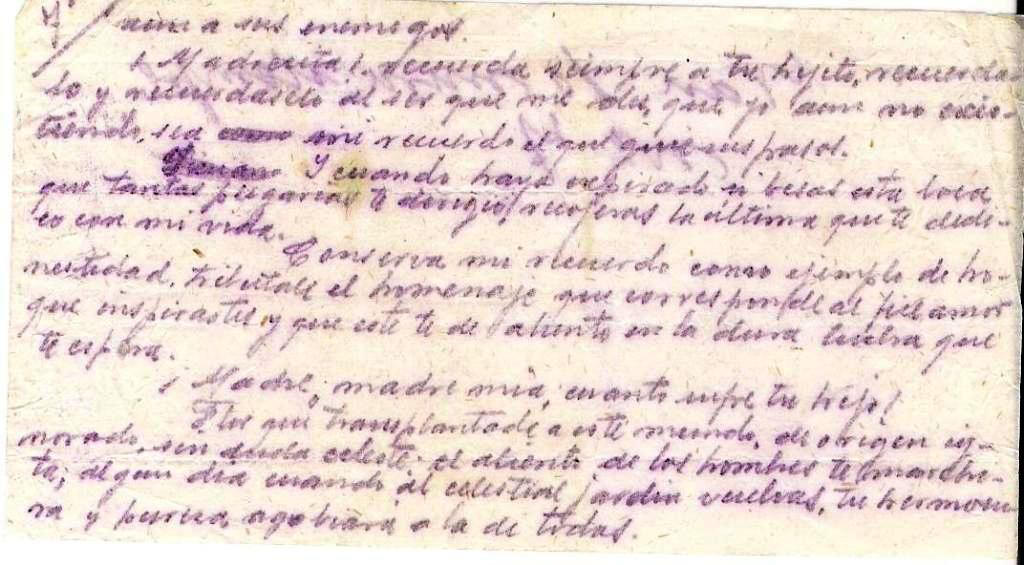 aun a sus enemigos.
¡Madrecita!, recuerda siempre a tu hijito, recuerda-
lo y recuerdaselo al ser que me dio, que yo aun no exis-
tiendo, sea mi recuerdo el que guie sus pasos.
Y cuando haya expirado si besas esta boca
que tantas plegarias te dirigió, recojeras la última que te dedi-
co con mi vida.
Conserva mi recuerdo como ejemplo de ho-
nestidad, tributale el homenaje que corresponde al fiel amor
que inspiraste y que este te de aliento en la dura lucha que
te espera.
¡Madre, madre mia, cuanto sufre tu hijo!
Flor que transplantada a este mundo, de origen ig-
norado, sin duda celeste, el aliento de los hombres te marchi-
ta; algun dia cuando al celestial jardin vuelvas, tu hermosu-
ra y pureza agobiará a la de todas.